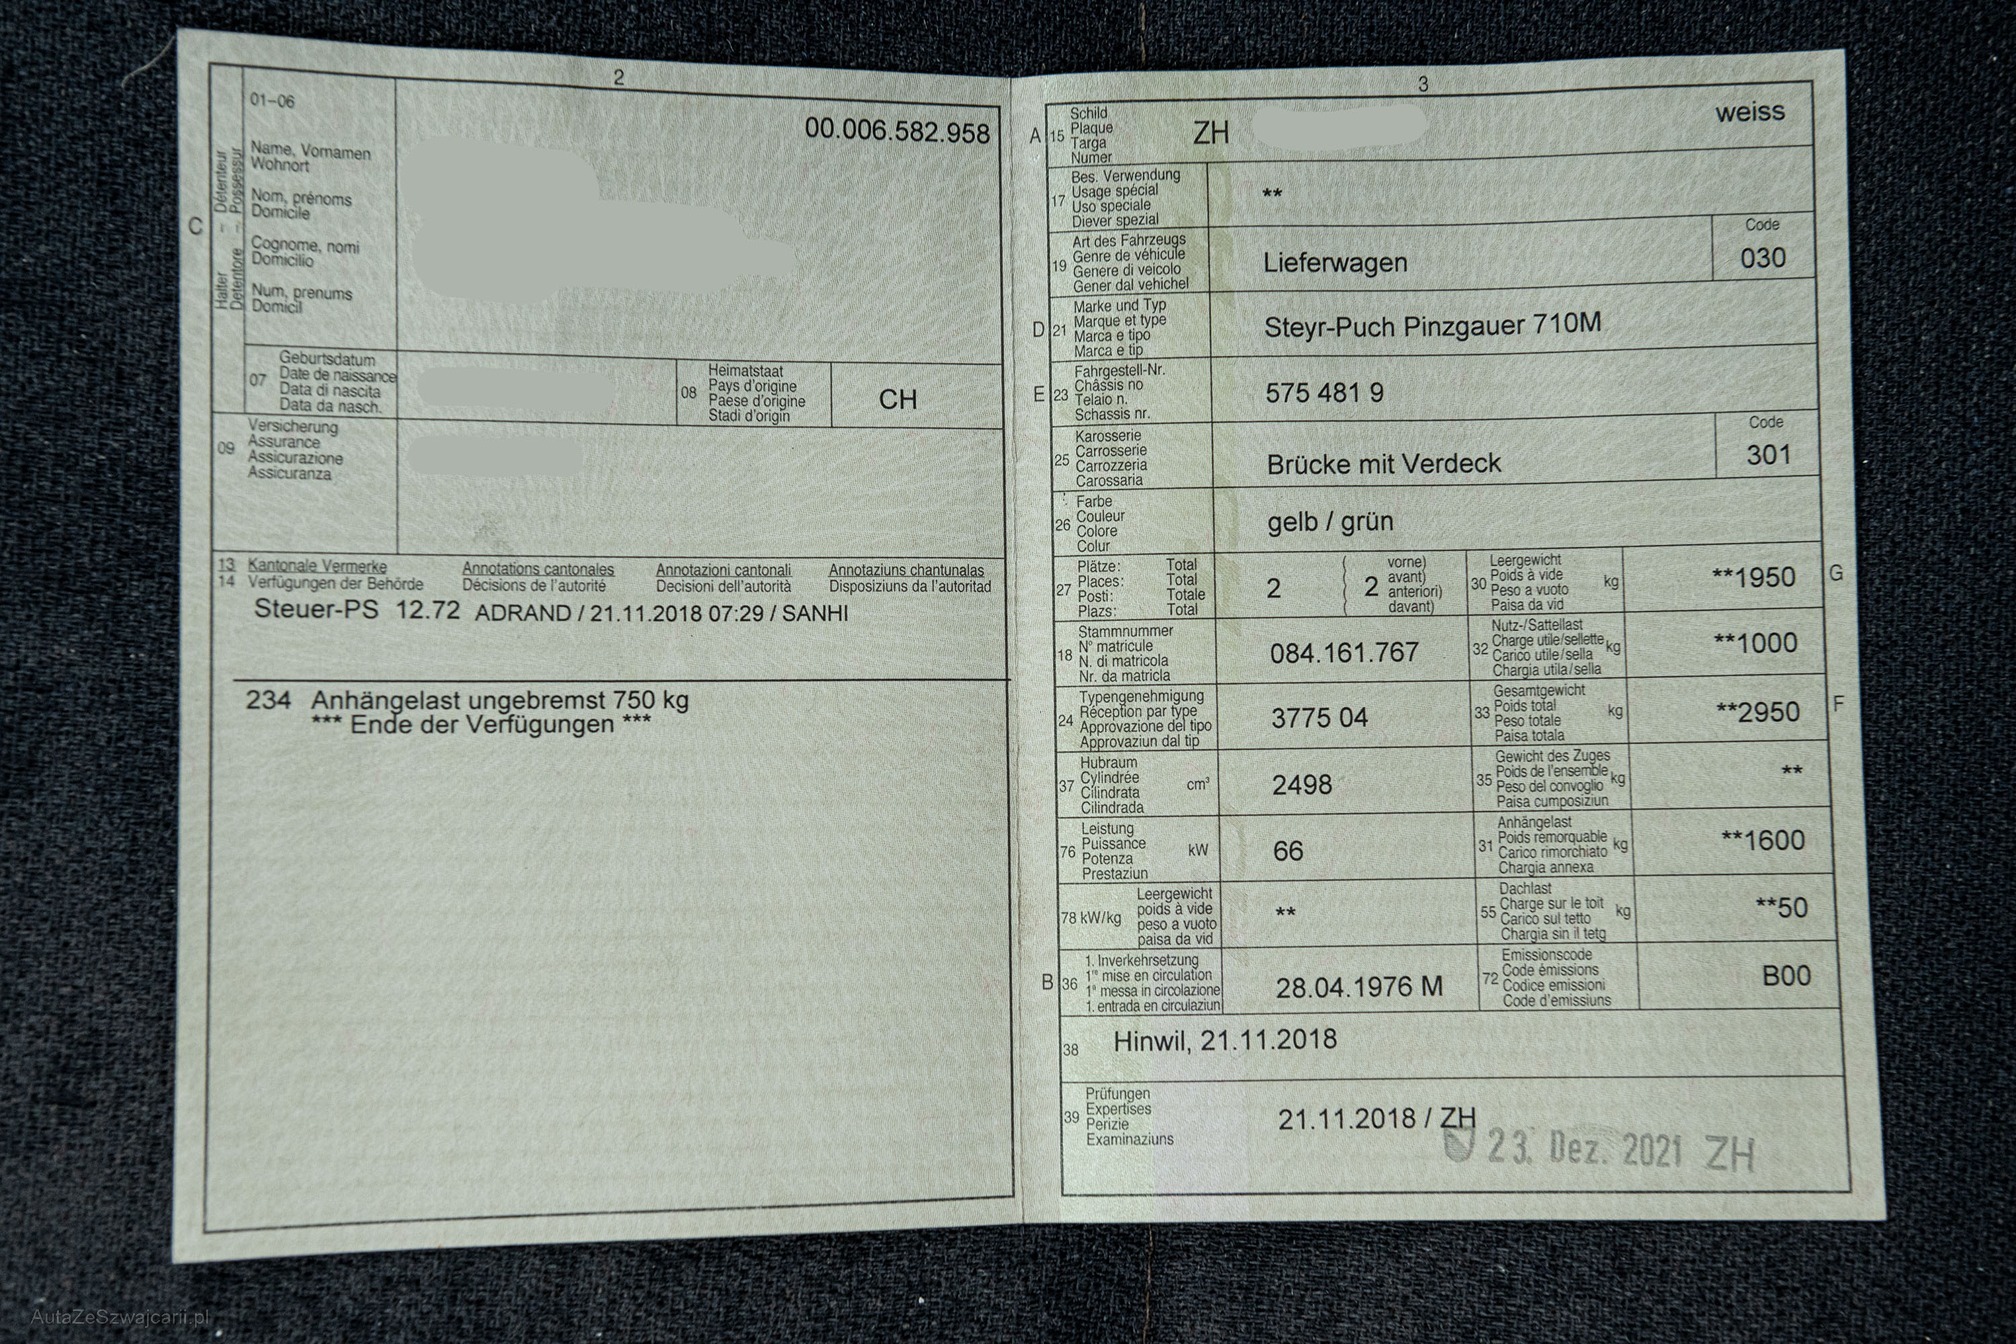 2
01–06
00.006.582.958
Name, Vornamen
Wohnort
Nom, prénoms
Domicile
Cognome, nomi
Domicilio
Num, prenums
Domicil
C
Halter – Détenteur
Detentore – Possessur
07
Geburtsdatum
Date de naissance
Data di nascita
Data da nasch.
08
Heimatstaat
Pays d'origine
Paese d'origine
Stadi d'origin
CH
09
Versicherung
Assurance
Assicurazione
Assicuranza
13 Kantonale Vermerke Annotations cantonales Annotazioni cantonali Annotaziuns chantunalas
14 Verfügungen der Behörde Décisions de l'autorité Decisioni dell'autorità Disposiziuns da l'autoritad
Steuer-PS 12.72 ADRAND / 21.11.2018 07:29 / SANHI
234 Anhängelast ungebremst 750 kg
*** Ende der Verfügungen ***
3
A 15
Schild
Plaque
Targa
Numer
ZH
weiss
17
Bes. Verwendung
Usage spécial
Uso speciale
Diever spezial
**
19
Art des Fahrzeugs
Genre de véhicule
Genere di veicolo
Gener dal vehichel
Lieferwagen
Code
030
D 21
Marke und Typ
Marque et type
Marca e tipo
Marca e tip
Steyr-Puch Pinzgauer 710M
E 23
Fahrgestell-Nr.
Châssis no
Telaio n.
Schassis nr.
575 481 9
25
Karosserie
Carrosserie
Carrozzeria
Carossaria
Brücke mit Verdeck
Code
301
26
Farbe
Couleur
Colore
Colur
gelb / grün
27
Plätze: Total
Places: Total
Posti: Totale
Plazs: Total
2
2
vorne)
avant)
anteriori)
davant)
30
Leergewicht
Poids à vide
Peso a vuoto
Paisa da vid
kg
**1950
G
18
Stammnummer
N° matricule
N. di matricola
Nr. da matricla
084.161.767
32
Nutz-/Sattellast
Charge utile/sellette
Carico utile/sella
Chargia utila/sella
kg
**1000
24
Typengenehmigung
Réception par type
Approvazione del tipo
Approvaziun dal tip
3775 04
33
Gesamtgewicht
Poids total
Peso totale
Paisa totala
kg
**2950
F
37
Hubraum
Cylindrée
Cilindrata
Cilindrada
cm³
2498
35
Gewicht des Zuges
Poids de l'ensemble
Peso del convoglio
Paisa cumposiziun
kg
**
76
Leistung
Puissance
Potenza
Prestaziun
kW
66
31
Anhängelast
Poids remorquable
Carico rimorchiato
Chargia annexa
kg
**1600
78 kW/kg
Leergewicht
poids à vide
peso a vuoto
paisa da vid
**
55
Dachlast
Charge sur le toit
Carico sul tetto
Chargia sin il tetg
kg
**50
B 36
1. Inverkehrsetzung
1re mise en circulation
1a messa in circolazione
1. entrada en circulaziun
28.04.1976 M
72
Emissionscode
Code émissions
Codice emissioni
Code d'emissiuns
B00
38
Hinwil, 21.11.2018
39
Prüfungen
Expertises
Perizie
Examinaziuns
21.11.2018 / ZH
23. Dez. 2021 ZH
AutaZeSzwajcarii.pl